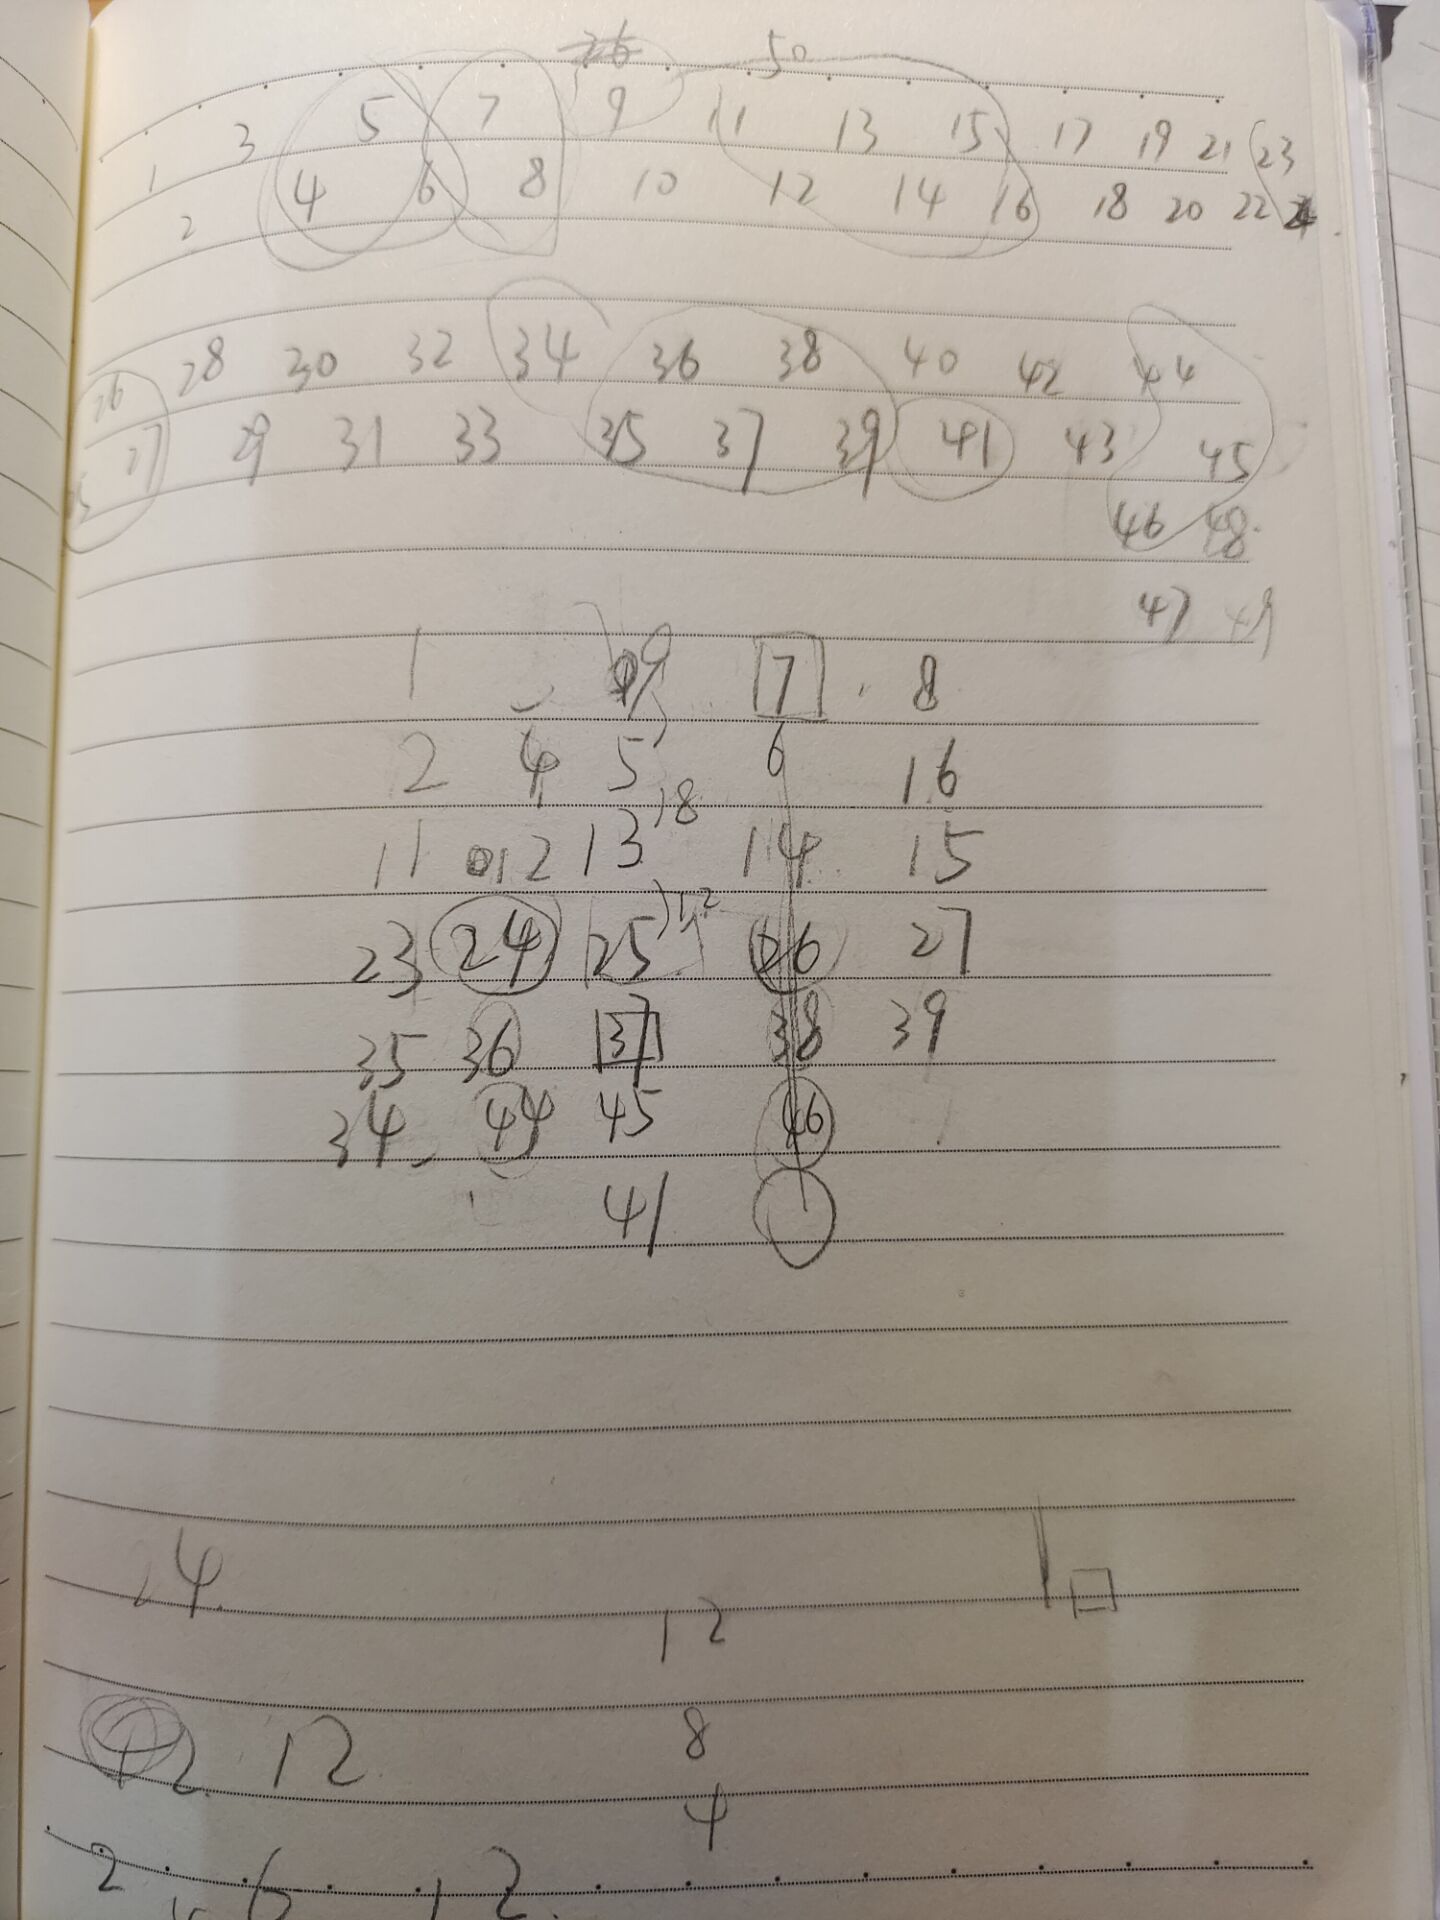 26 50
1 3 5 7 9 11 13 15 17 19 21 23
2 4 6 8 10 12 14 16 18 20 22 24
26 28 30 32 34 36 38 40 42 44
27 29 31 33 35 37 39 41 43 45
46 48
47 49
1 9 7 8
2 4 5 6 16
18
11 12 13 14 15
12
23 24 25 26 27
35 36 37 38 39
34 44 45 46
41
24
12
12 12 8
4
2 6 12